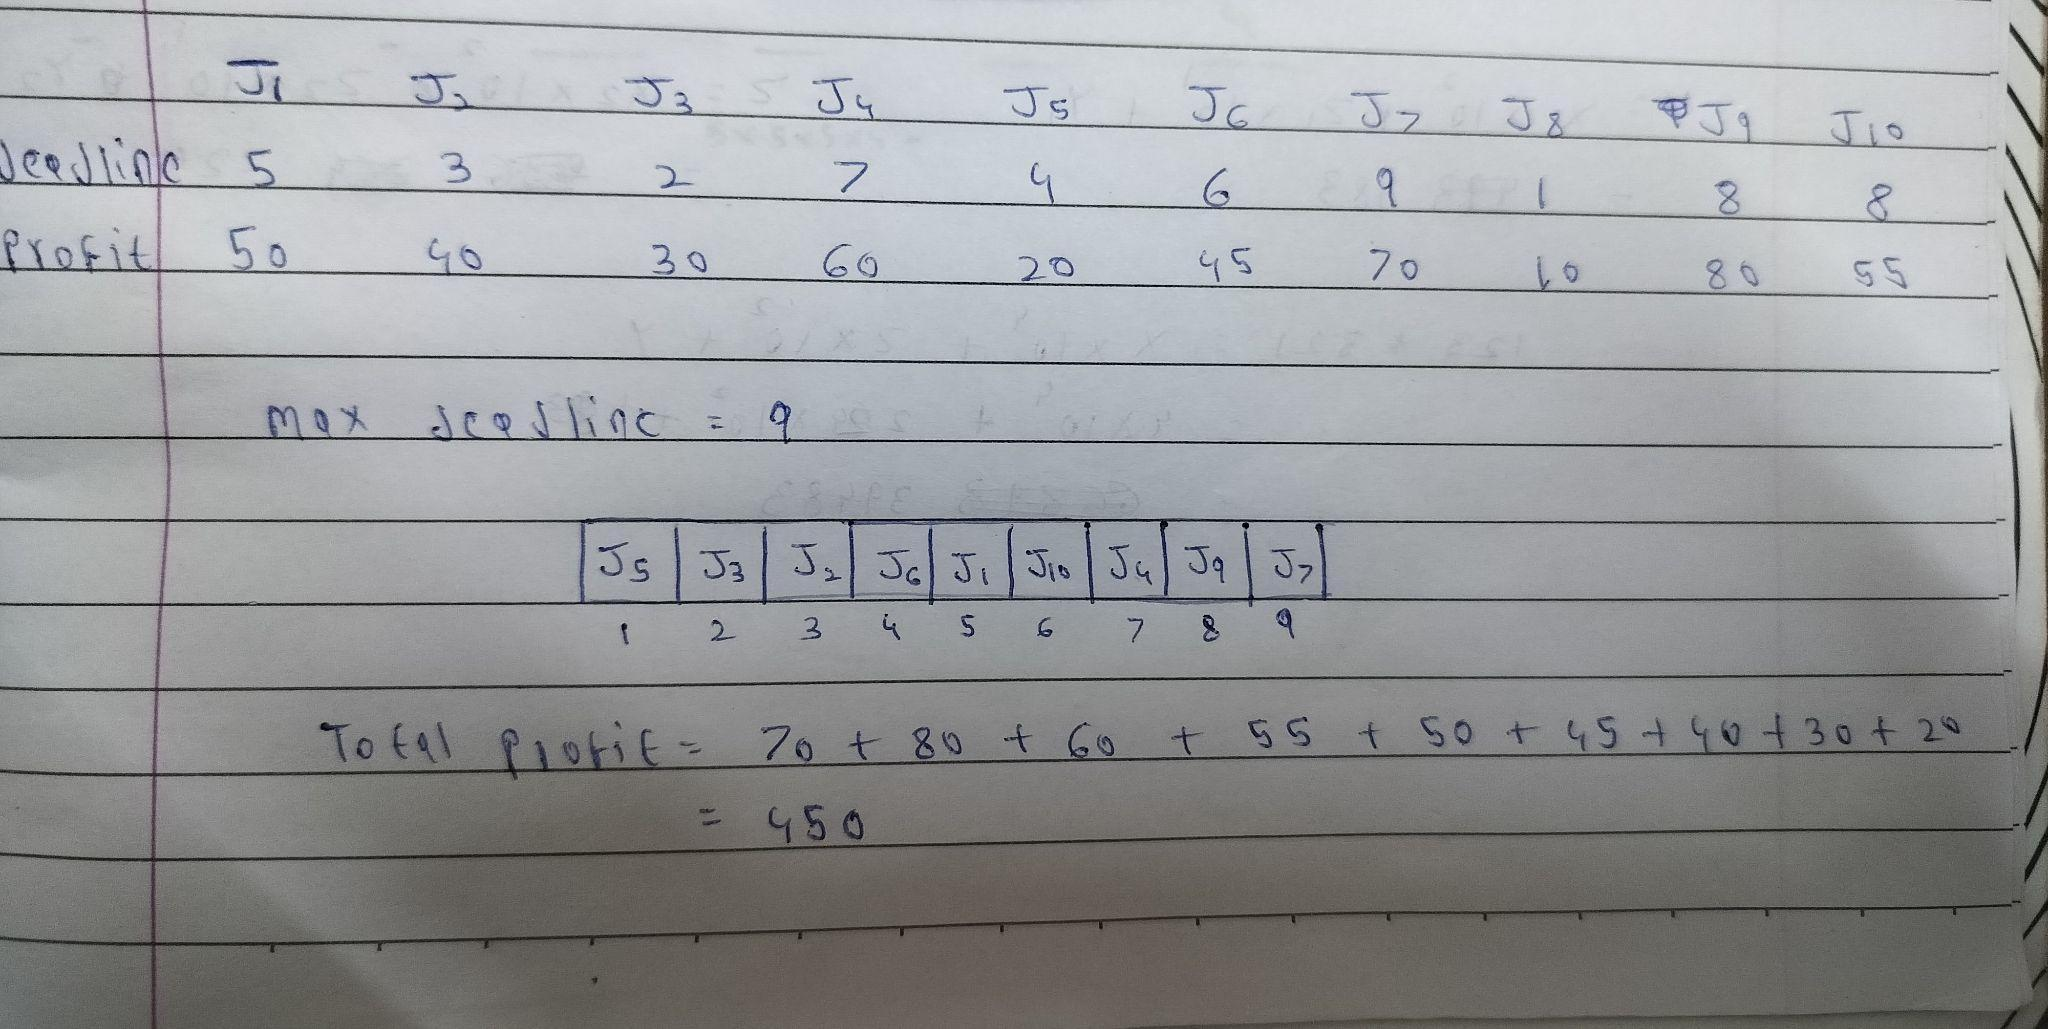 J1 J2 J3 J4 J5 J6 J7 J8 J9 J10
Deadline 5 3 2 7 4 6 9 1 8 8
Profit 50 40 30 60 20 45 70 10 80 55
max deadline = 9
J5 J3 J2 J6 J1 J10 J4 J9 J7
1 2 3 4 5 6 7 8 9
Total Profit = 70 + 80 + 60 + 55 + 50 + 45 + 40 + 30 + 20
= 450